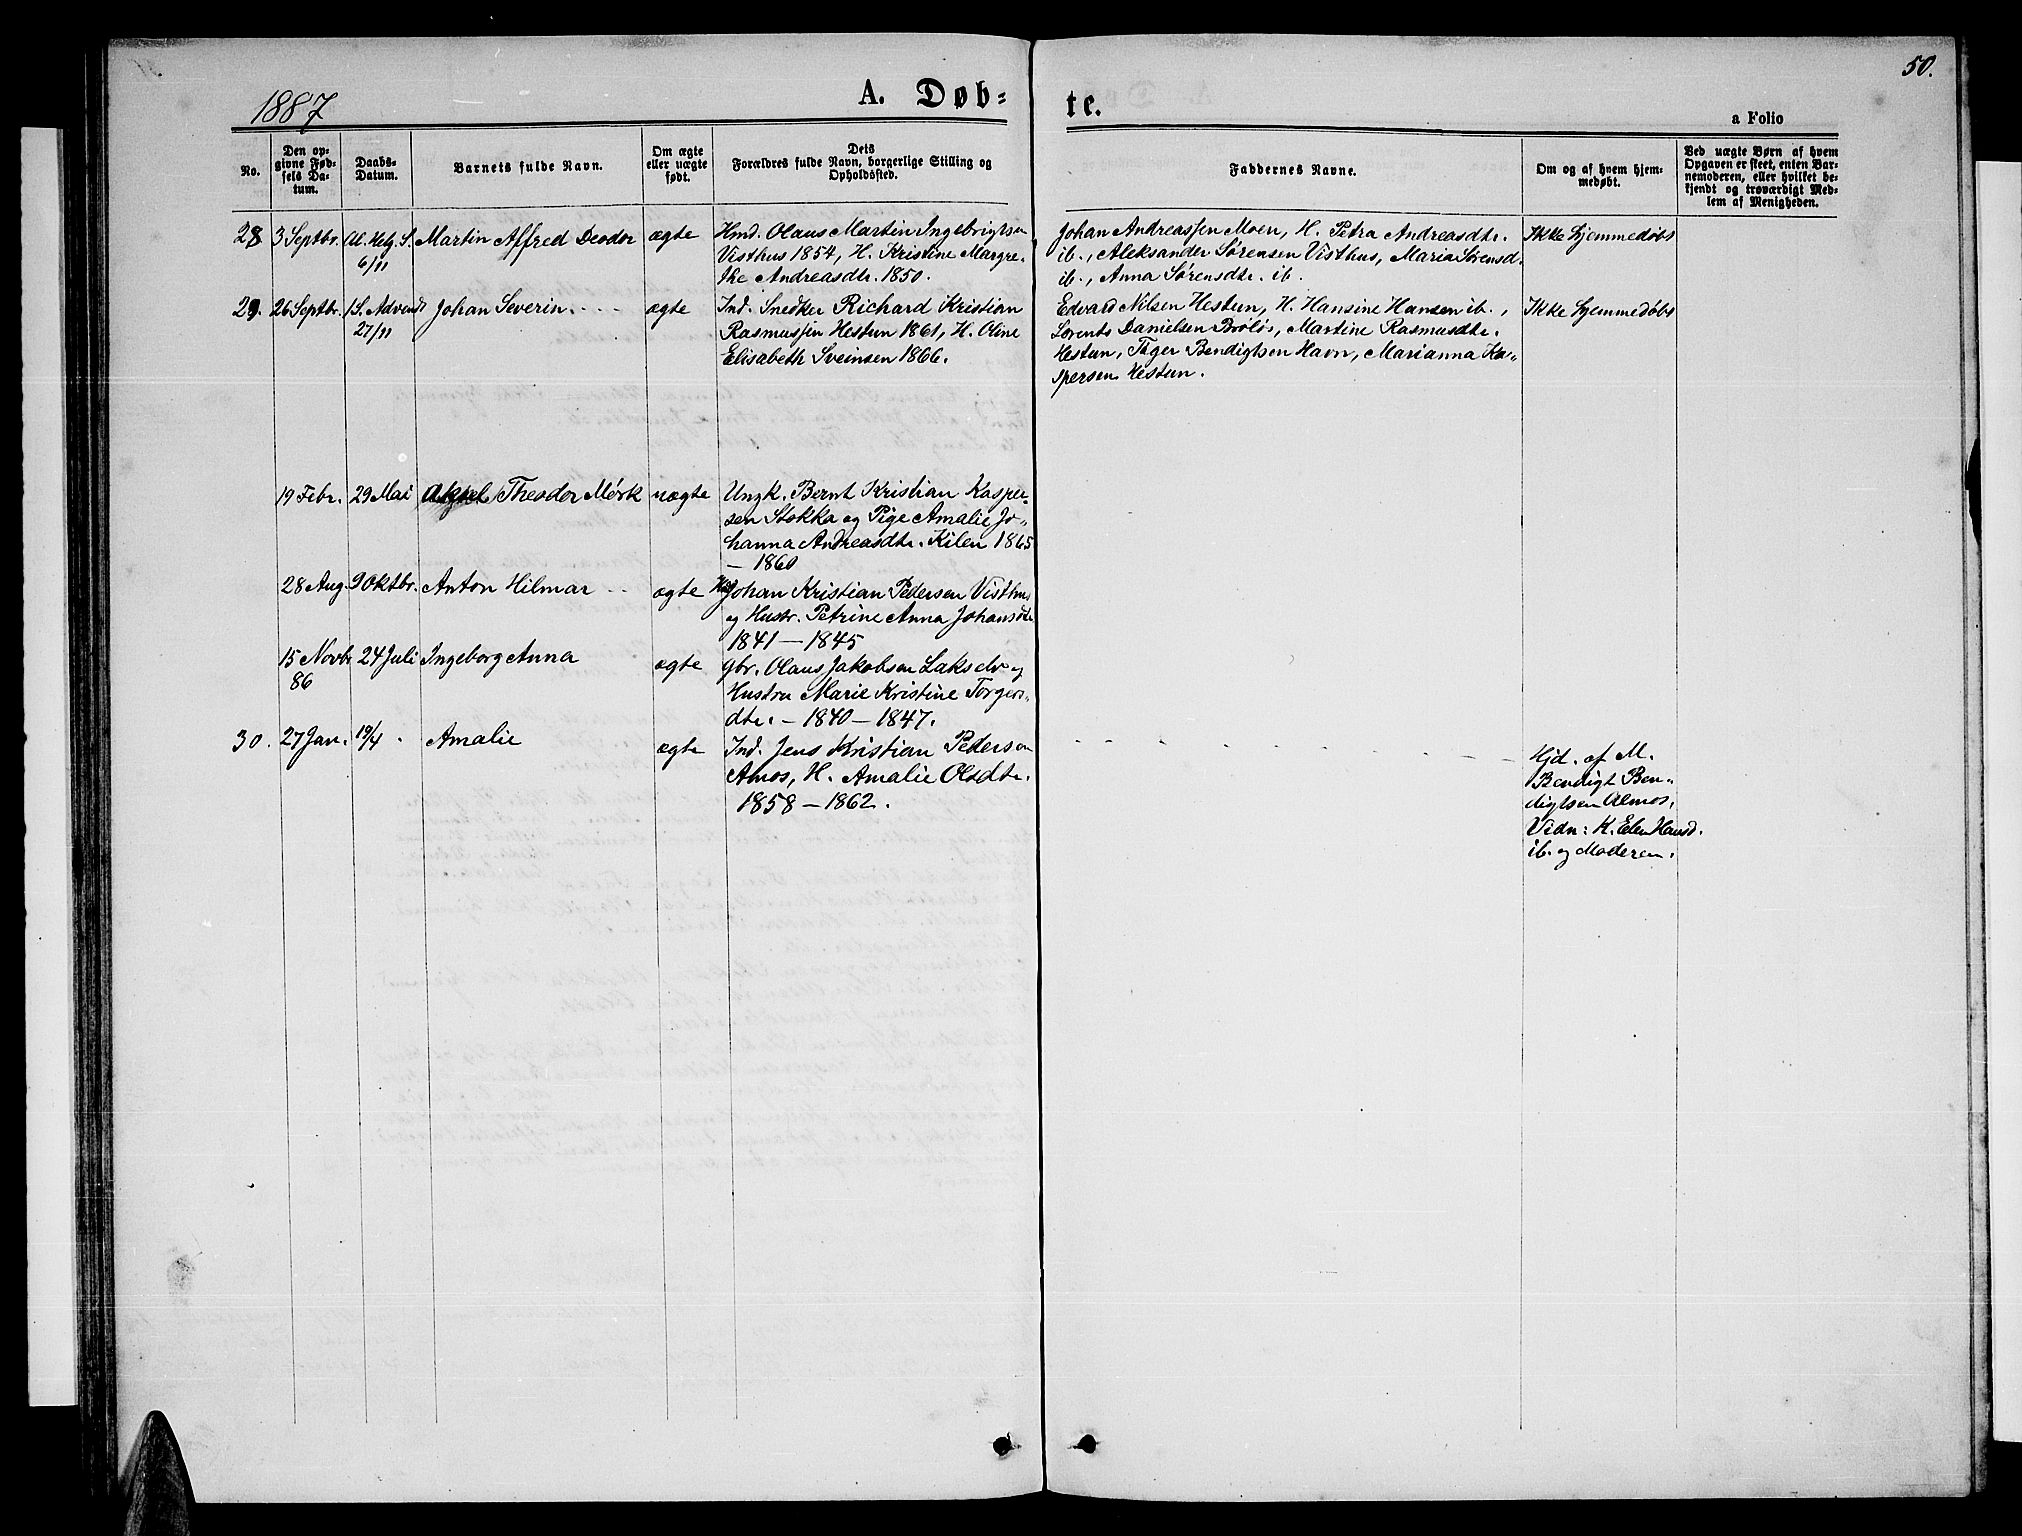 50.
1887
A. Døb=
te.
a Folio
No.
Den op=
givne Fød=
sels Da=
tum.
Daabs=
Datum.
Barnets fulde Navn.
Om ægte
eller uægte
født.
Dets
Forældres fulde Navn, borgerlige Stilling og
Opholdssted.
Faddernes Navne.
Om og af hvem hjem=
medøbt.
Ved uægte Børn af hvem
Opgaven er skeet, enten Bar=
nemoderen, eller hvilket be=
kjendt og troværdigt Med=
lem af Menigheden.
28 3 Septbr. Al. Helg. S. Martin Alfred Deodor ægte Hmd. Olaus Martin Ingebrigtsen Johan Andreassen Moen, H. Petra Andreasdtr. Ikke hjemmedøbt
6/11 Visthus 1854, H. Kristine Margre- ib., Aleksander Sørensen Visthus, Maria Sørensd.
the Andreasdtr. 1850. ib., Anna Sørensdtr. ib.
29. 26 Septbr. 1 S. Advendt Johan Severin ægte Ind. Snedker Richard Kristian Edvard Nilsen Hestun, H. Hansine Hansen ib., Ikke hjemmedøbt
27/11 Rasmussen Hestun 1861, H. Oline Lorents Danielsen Brøløs, Martine Rasmusdtr.
Elisabeth Sveinsen 1866. Hestun, Tøger Bendigtsen Havn, Marianna Ka-
spersen Hestun.
19 Febr. 29 Mai Aksel Theodor Mørk uægte Ungk. Bernt Kristian Kasper-
sen Stokka og Pige Amalie Jo-
hanna Andreasdtr. Kilen 1865
— 1860
28 Aug. 9 Oktbr. Anton Hilmar ægte Johan Kristian Pedersen Visthus
og Hustr. Petrine Anna Johansdtr
1841 — 1845
15 Novbr 24 Juli Ingeborg Anna ægte Gbr. Olaus Jakobsen Lakselv og
86 Hustru Marie Kristine Torgers-
dtr. — 1840 — 1847.
30. 27 Jan. 19/4 Amalie ægte Ind. Jens Kristian Pedersen Hjd. af M.
Amos, H. Amalie Olsdtr. Bendigt Ben-
1858 — 1862. digtsen Almos,
Vidn: K. Elen Hansd.
ib. og Moderen.